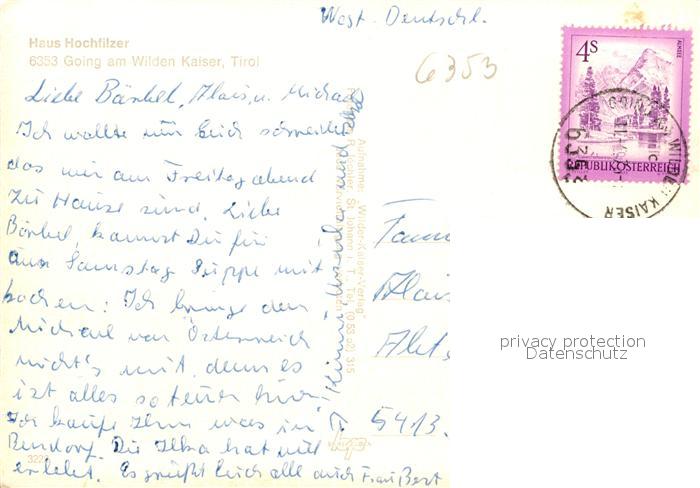 West-Deutschl.
Haus Hochfilzer
6353 Going am Wilden Kaiser, Tirol
6353
4S
ALMSEE
REPUBLIK ÖSTERREICH
GOING AM WILDEN KAISER
6353
Liebe Bärbel, Klaus, u. Michael
Ich wollte nur Euch schreiben
das wir am Freitagabend
zu Hause sind. Liebe
Bärbel, kannst Du für
uns Samstag Suppe mit
kochen: Ich bringe dem
Michael von Österreich
nicht's mit, denn es
ist alles so teuer hier.
Ich kaufe Ihm was in
Bendorf. Die Ilka hat viel
erlebt. Es grüßt Euch alle auch Frau Bert
Aufnahme "Wilder-Kaiser-Verlag"
St. Johann i. T., Tel. (0 53 52) 315
Fam
Klaus
5413.
322
privacy protection
Datenschutz